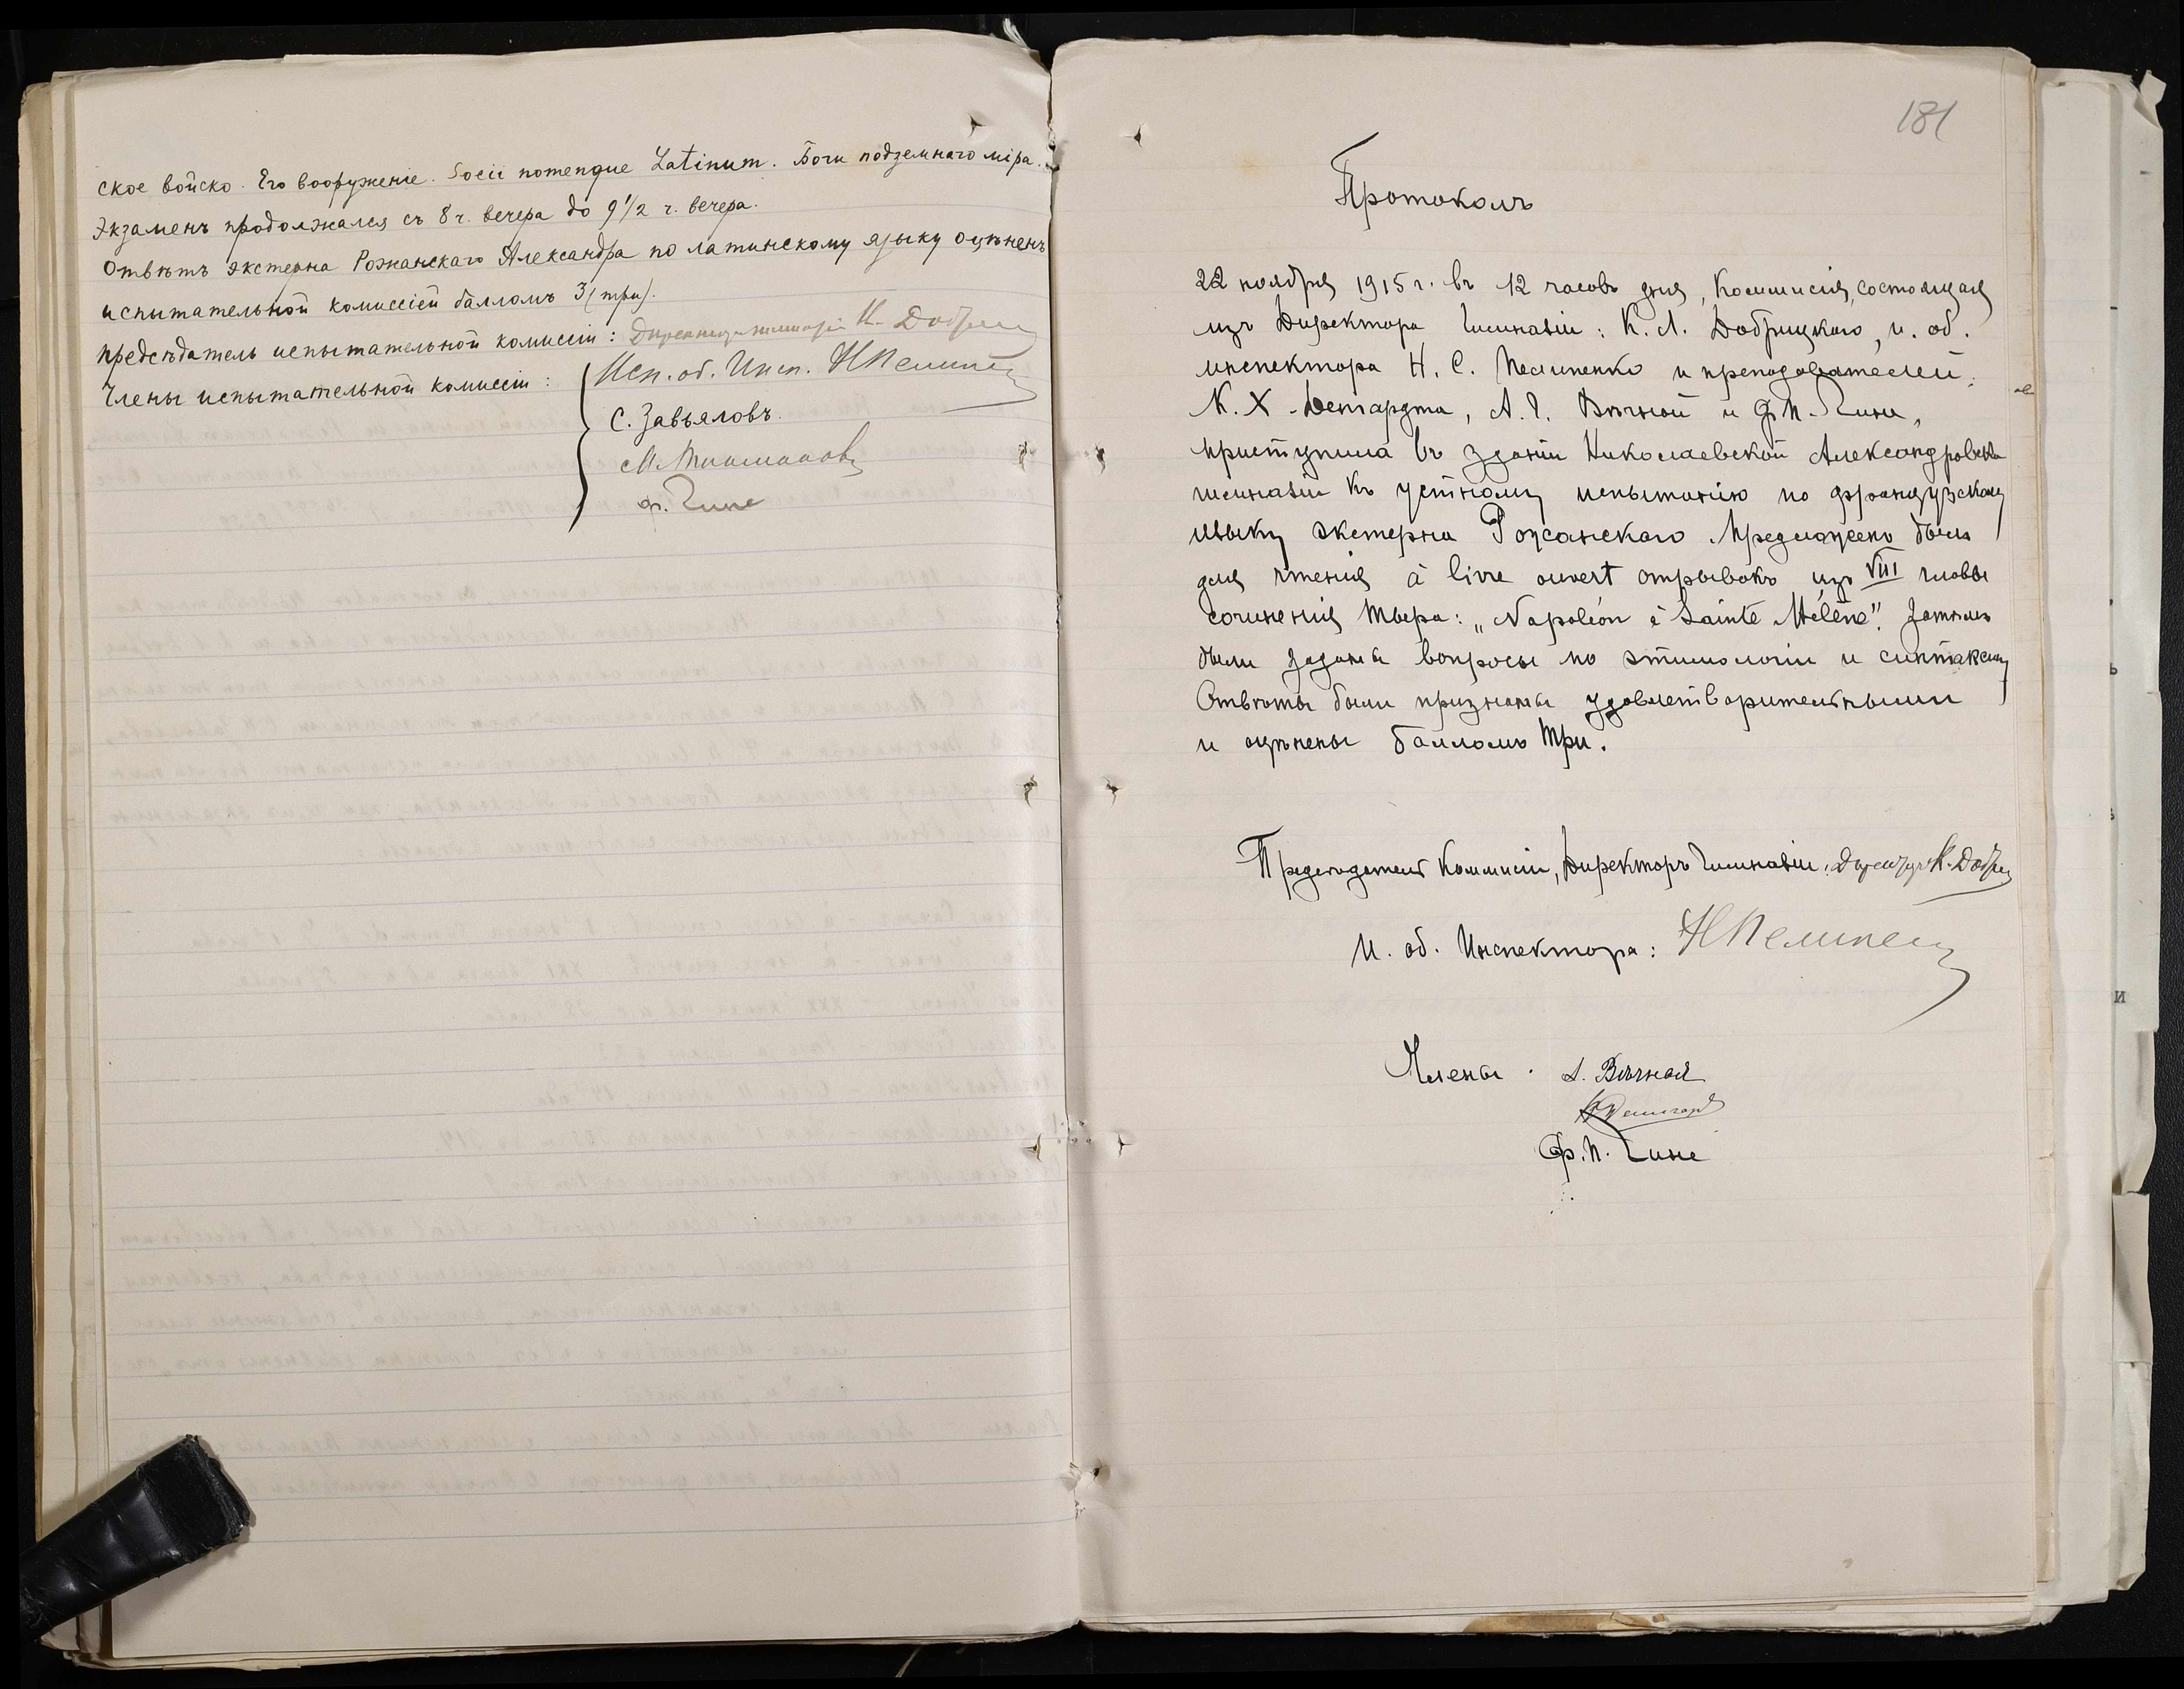 ское войско. Его вооруженіе. Socii nomenque Latinum. Боги подземнаго міра.
Экзаменъ продолжался съ 8 ч. вечера до 9 1/2 ч. вечера.
Отвѣтъ экстерна Рожанскаго Александра по латинскому языку оцѣненъ
испытательной комиссіей балломъ 3 (три).
Предсѣдатель испытательной комиссіи: Директоръ гимназіи К. Добр
Члены испытательной комиссіи: Исп. об. Инсп. Н Пелипенко
С. Завьяловъ.
Ф. Гине
181
Протоколъ
22 ноября 1915 г. въ 12 часовъ дня, Коммисія, состоящая
изъ Директора Гимназіи: К. Л. Добрицкаго, и. об.
инспектора Н. С. Пелипенко и преподавателей:
К. Х. А. Г. Вѣчной и Ф. П. Гине,
приступила въ зданіи Николаевской Александровской
гимназіи къ устному испытанію по французскому
языку экстерна Рожанскаго. Предложенъ былъ
для чтенія à livre ouvert отрывокъ изъ VIII главы
сочиненія Тьера: „Napoléon à Sainte Hélène". Затѣмъ
были заданы вопросы по этимологіи и синтаксису
Отвѣты были признаны удовлетворительными
и оцѣнены балломъ три.
Предсѣдатель Коммисіи, Директоръ Гимназіи: Директоръ К. Добр
И. об. Инспектора: Н Пелипенко
Члены: А. Вѣчная
Ф. П. Гине